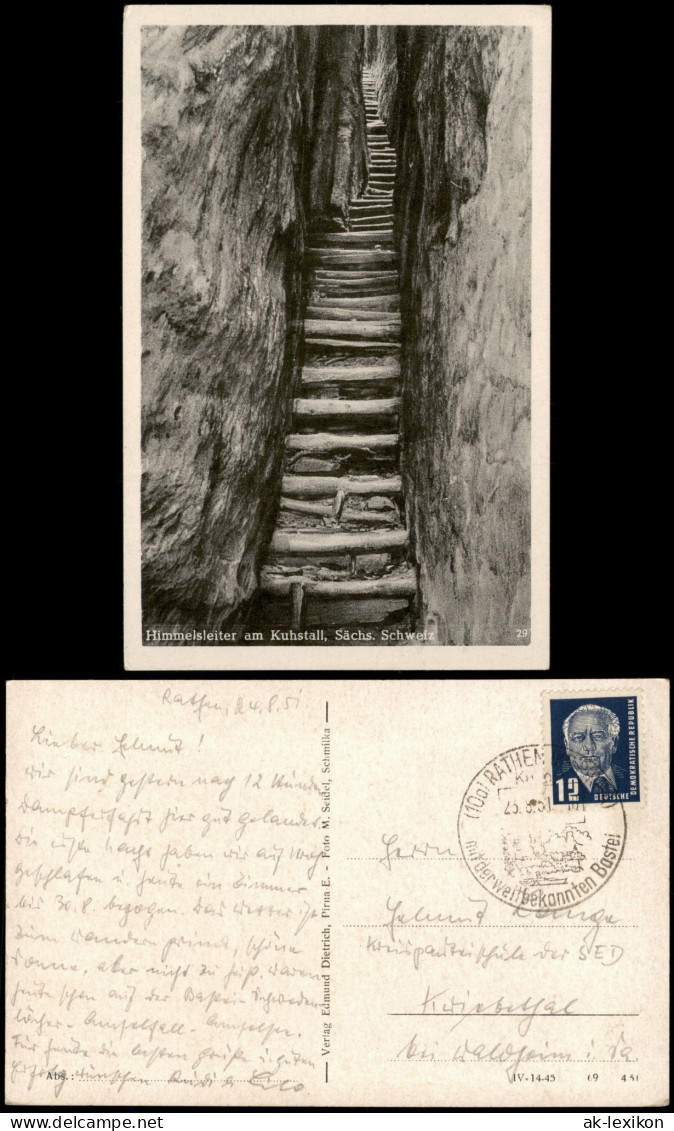 Himmelsleiter am Kuhstall, Sächs. Schweiz
29
Rathen, 24.8.51
Lieber Helmut!
Wir sind gestern nach 12 Stunden
Dampferfahrt hier gut gelandet.
Die erste Nacht haben wir auf
geschlafen u. heute ein Zimmer
bis 30.8. bezogen. Das Wetter ist
zum Wandern prima, schöne
Sonne, aber nicht zu heiß. Waren
heute schon auf der Bastei - Schweden-
löcher - Amselfall - Amselsee.
Für heute die besten Grüße u. guten
Abs.:
Verlag Edmund Dietrich, Pirna E. - Foto M. Seidel, Schmilka
DEUTSCHE DEMOKRATISCHE REPUBLIK
12
DEUTSCHE
(10a) RATHEN
mit der weltbekannten Bastei
Herrn
Helmut Lange
Kreisparteischule der SED
Kriebethal
bei Waldheim i. Sa.
IV-14-45 69 4 51
delcampe.net
ak-lexikon